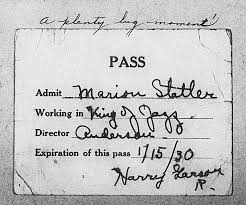 a plenty big moment!
PASS
Admit Marion Statler
Working in King of Jazz
Director Anderson
Expiration of this pass 1/15/30
Harry Larson
R.